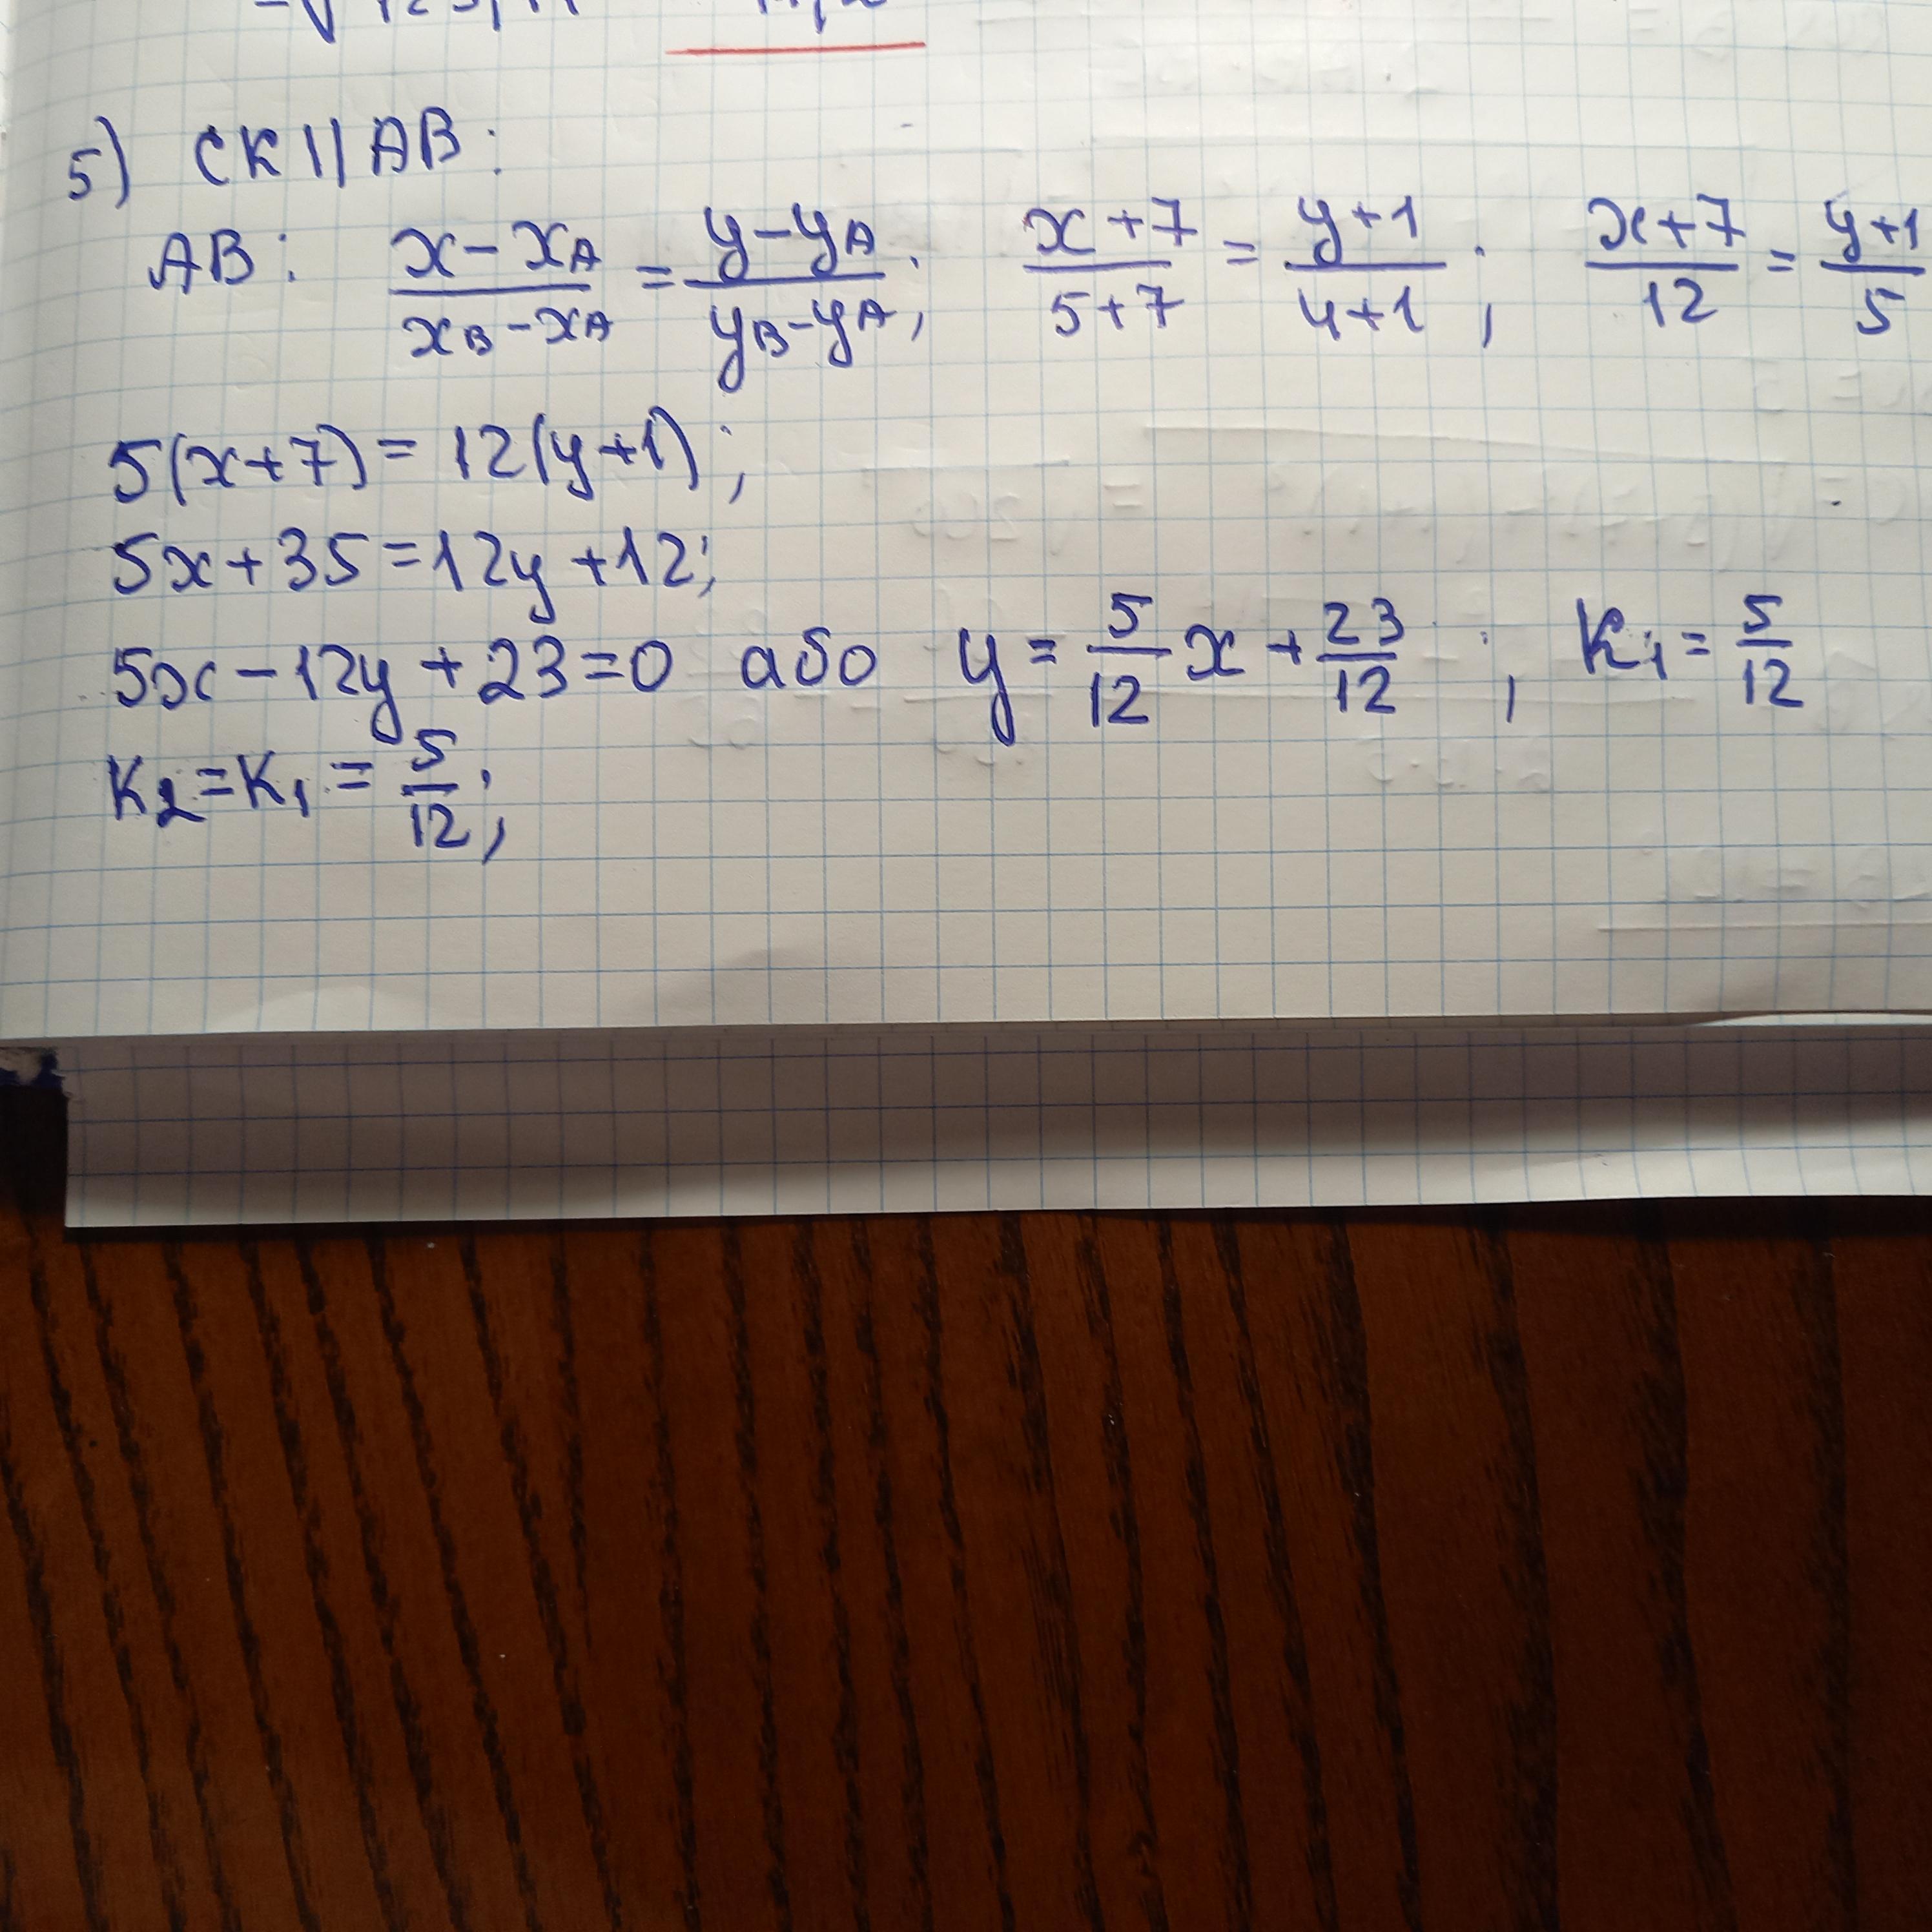 5) CK || AB:
AB: (x - x_A)/(x_B - x_A) = (y - y_A)/(y_B - y_A); (x+7)/(5+7) = (y+1)/(4+1); (x+7)/12 = (y+1)/5
5(x+7) = 12(y+1);
5x + 35 = 12y + 12;
5x - 12y + 23 = 0 або y = 5/12 x + 23/12; K₁ = 5/12
K₂ = K₁ = 5/12;